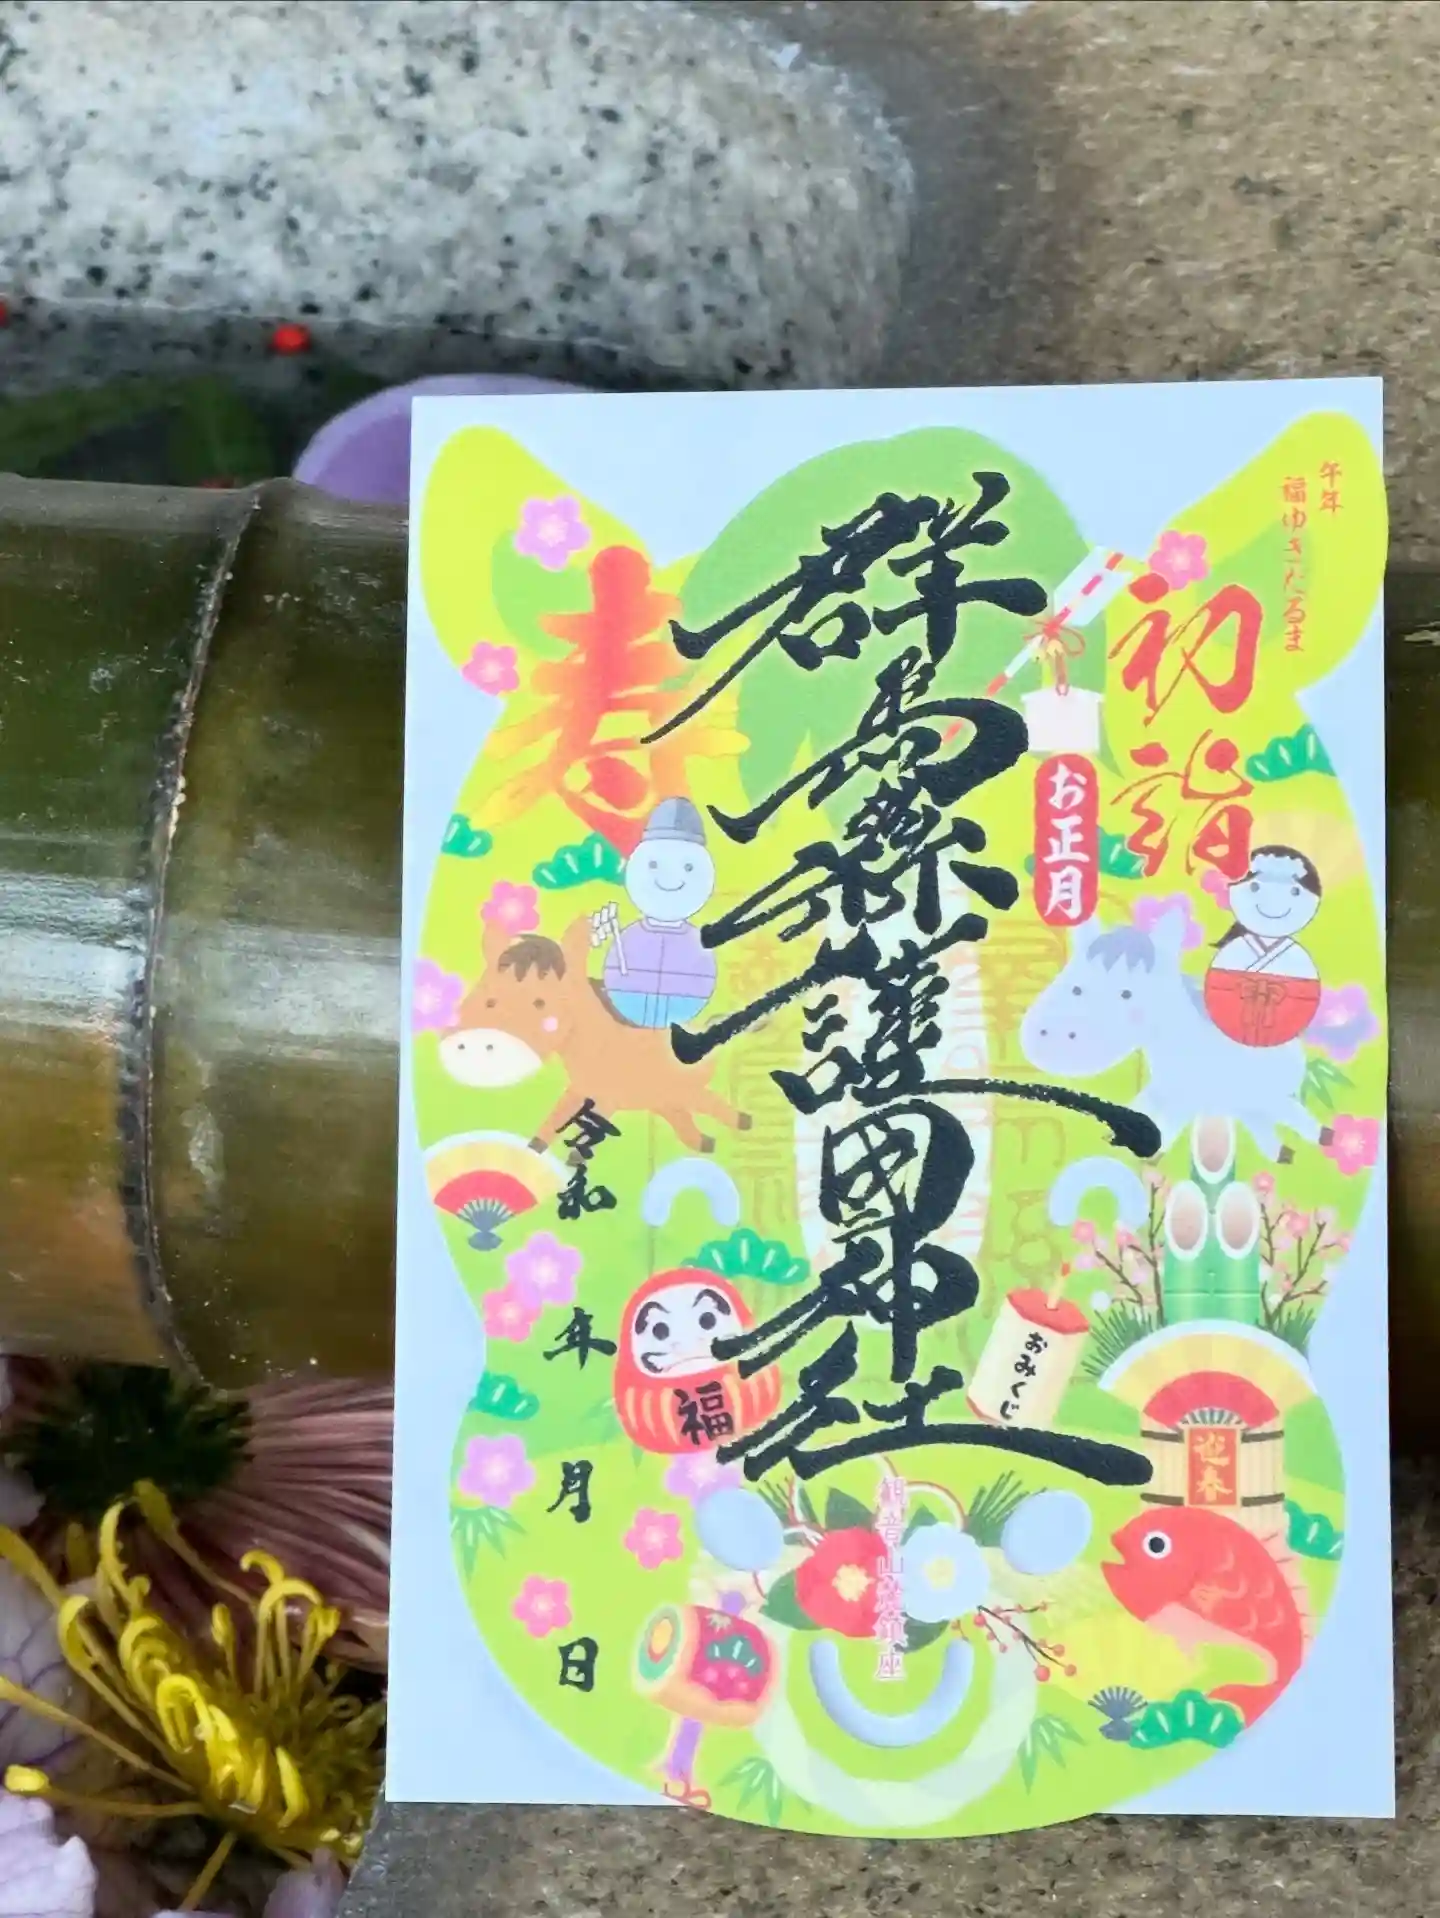 午年
福ゆきだるま
初詣
お正月
群馬縣護國神社
寿
令和
年
月
日
福
おみくじ
迎春
観音山麓鎮座